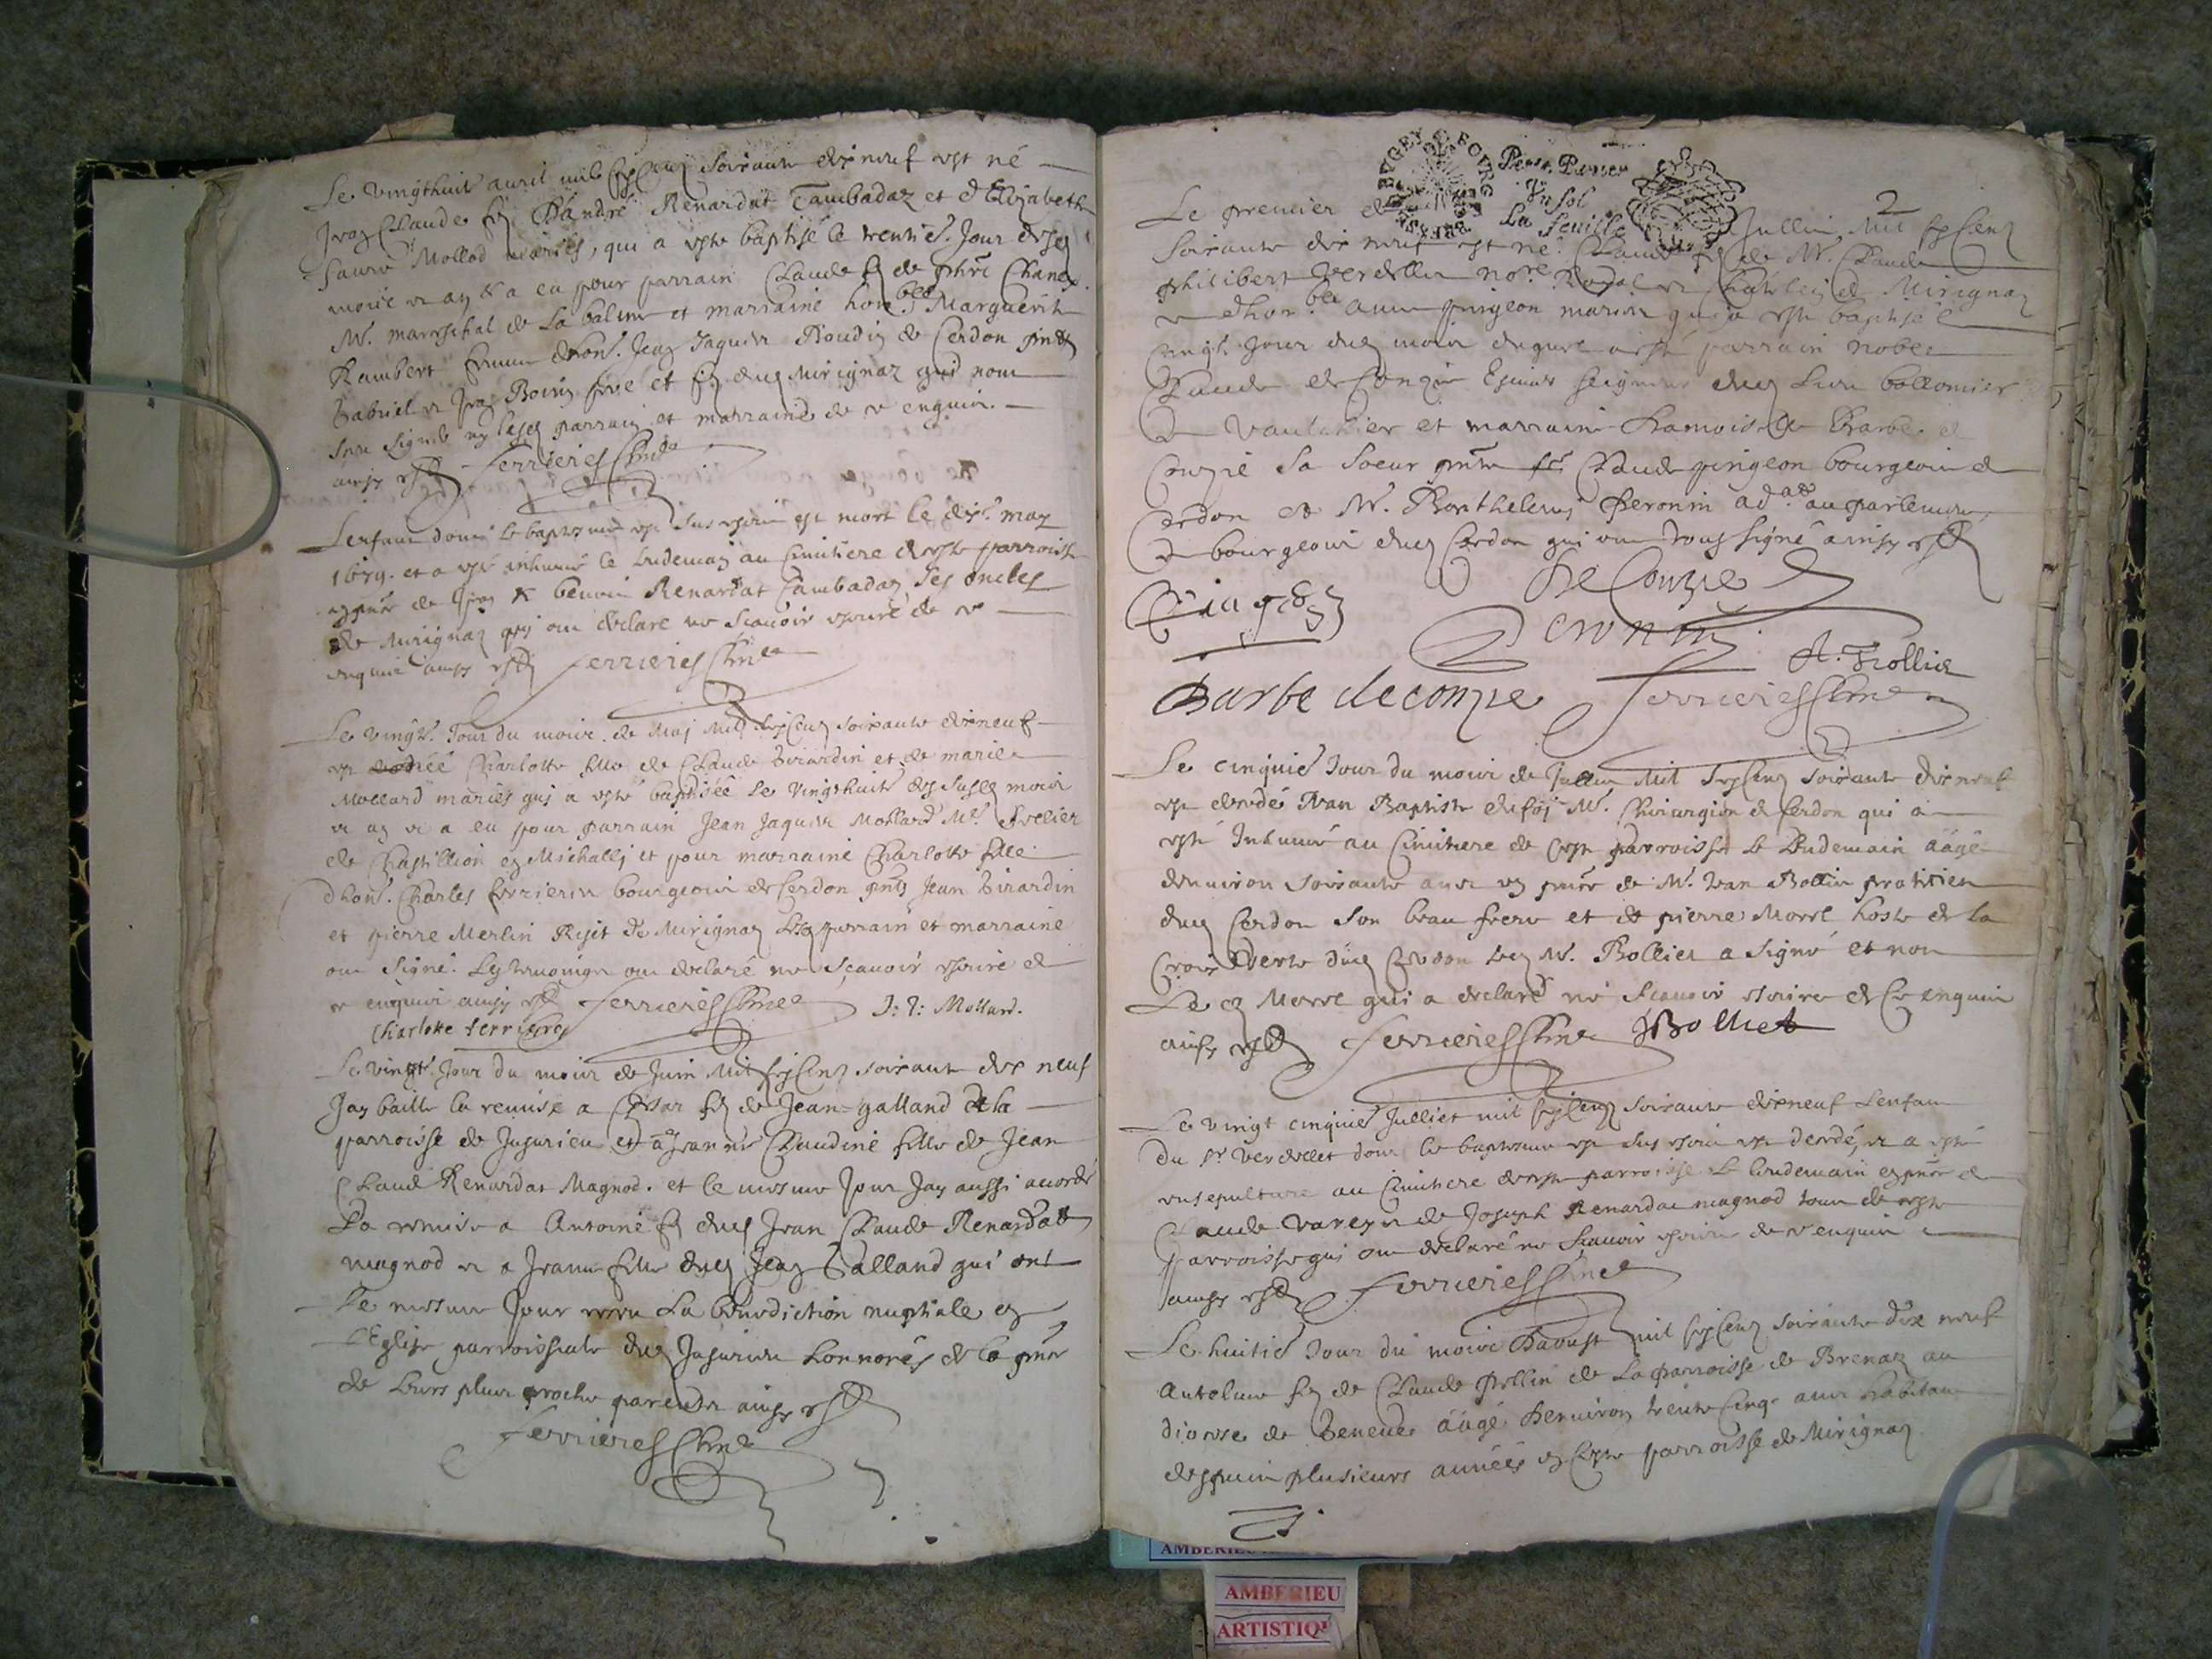 Le vingthuit avril mil six cens soixante dix neuf est né
Jean Claude fils D'andré Renardat Tambadaz et d'Elizabeth
Mollod mariés, qui a esté baptisé le trentie. Jour desd
mois et an & a eu pour parrain Claude fs de
M. mareschal de la balme et marraine hon.ble Marguerite
Rambert femme d'hon. Jean Jaques Roudin de Cerdon
Gabriel et Jean et fs dud Mirignaz qui nont
sceu signer ny lesd parrain et marraine de ce enquis.
ainsy est Ferrieres Curé
Lenfant dont le baptesme est sus escrit est mort le dix. may
1679. et a esté inhumé le lendemain au Cimitiere de ceste parroisse
en pnce de Jean & benoit Renardat Tambadaz ses oncles
de Mirignaz qui ont declare ne scavoir escrire de ce
enquis ainsy est Ferrieres Curé
Le vingt. Jour du mois de Maj Mil six cens soixante dix neuf
est née Charlotte fille de Claude Girardin et de marie
Mollard mariés qui a esté baptisée le vingthuit des susd mois
et an et a eu pour parrain Jean Jaques Mollard M.
de Chastillion en Michallj et pour marraine Charlotte fille
d'hon. Charles ferrieres bourgeois de Cerdon pnts Jean Girardin
et pierre Merlin de Mirignaz Lesd parrain et marraine
ont signé. Les tesmoings ont declaré ne sçavoir escrire de
ce enquis ainsy est Ferrieres Curé J: J: Mollard.
Charlotte ferrieres
Le vingt. Jour du mois de Juin Mil six cens soixante dix neuf
Jay baille la remise a Cesar fs de Jean galland de la
parroisse de Jujurieu et a Jeanne Claudine fille de Jean
Claude Renardat Magnod. et le mesme Jour Jay aussi accordé
La remise a Antoine fs dud Jean Claude Renardat
magnod et a Jeanne fille dud Jean Galland qui ont
Le mesme Jour receu La benediction nuptiale en
L'Eglise parroissiale dud Jujurieu honnorés de la pnce
de leurs plus proches parents ainsy est
Ferrieres Curé
BRESSE BVGEY BOVRG
Pour Papier
Un sol
La feuille
2
Le premier Jullin Mil six cens
soixante dix neuf est né Claude fs de M. Claude
philibert Verdellet no.re Royal et de Mirignaz
et d'hon.ble anne pingeon mariés qui a esté baptisé le
cinq. Jour dud mois duquel a esté parrain noble
Claude de Conzie Escuier seigneur dud Lieu bollomier
& Vaulchier et marraine Damoiselle Barbe de
Conzié sa soeur pnte Claude pingeon bourgeois de
Cerdon et M. Barthelemj Peronin ad.at au parlement
& bourgeois dud Cerdon qui ont tous signé ainsy est
De Conzie
Pingeon
Peronin
A. Trollier
Barbe deconzie Ferrieres Curé
Le cinquie. Jour du mois de Jullin Mil six cens soixante dix neuf
est decedé Jean Baptiste M. Chirurgien de Cerdon qui a
esté Inhumé au Cimitiere de ceste parroisse Le lendemain äägé
denviron soixante ans en pnce de M. Jean Bollier praticien
dud Cerdon son beau frere et de pierre Morel hoste de la
Croix Verte dud Cerdon led M. Bollier a signé et non
Led Morel qui a declaré ne scavoir escrire de ce enquis
ainsy est Ferrieres Curé JBolliet
Le vingt cinquie. Julliet mil six cens soixante dix neuf Lenfant
du sr Verdellet dont le baptesme est sus escrit est decedé, et a esté
ensepulturé au Cimitiere de ceste parroisse Le lendemain en pnce de
Claude Vareys et de Joseph Renardat magnod tous de ceste
parroisse qui ont declaré ne scavoir escrire de ce enquis
ainsy est Ferrieres Curé
Le huitie. Jour du mois Daoust mil six cens soixante dix neuf
Antolme fs de Claude pellin de La parroisse de Brenaz au
diocese de Geneve äägé Denviron trente cinq ans habitant
despuis plusieurs années en ceste parroisse de Mirignaz
AMBERIEU
AMBERIEU
ARTISTIQU